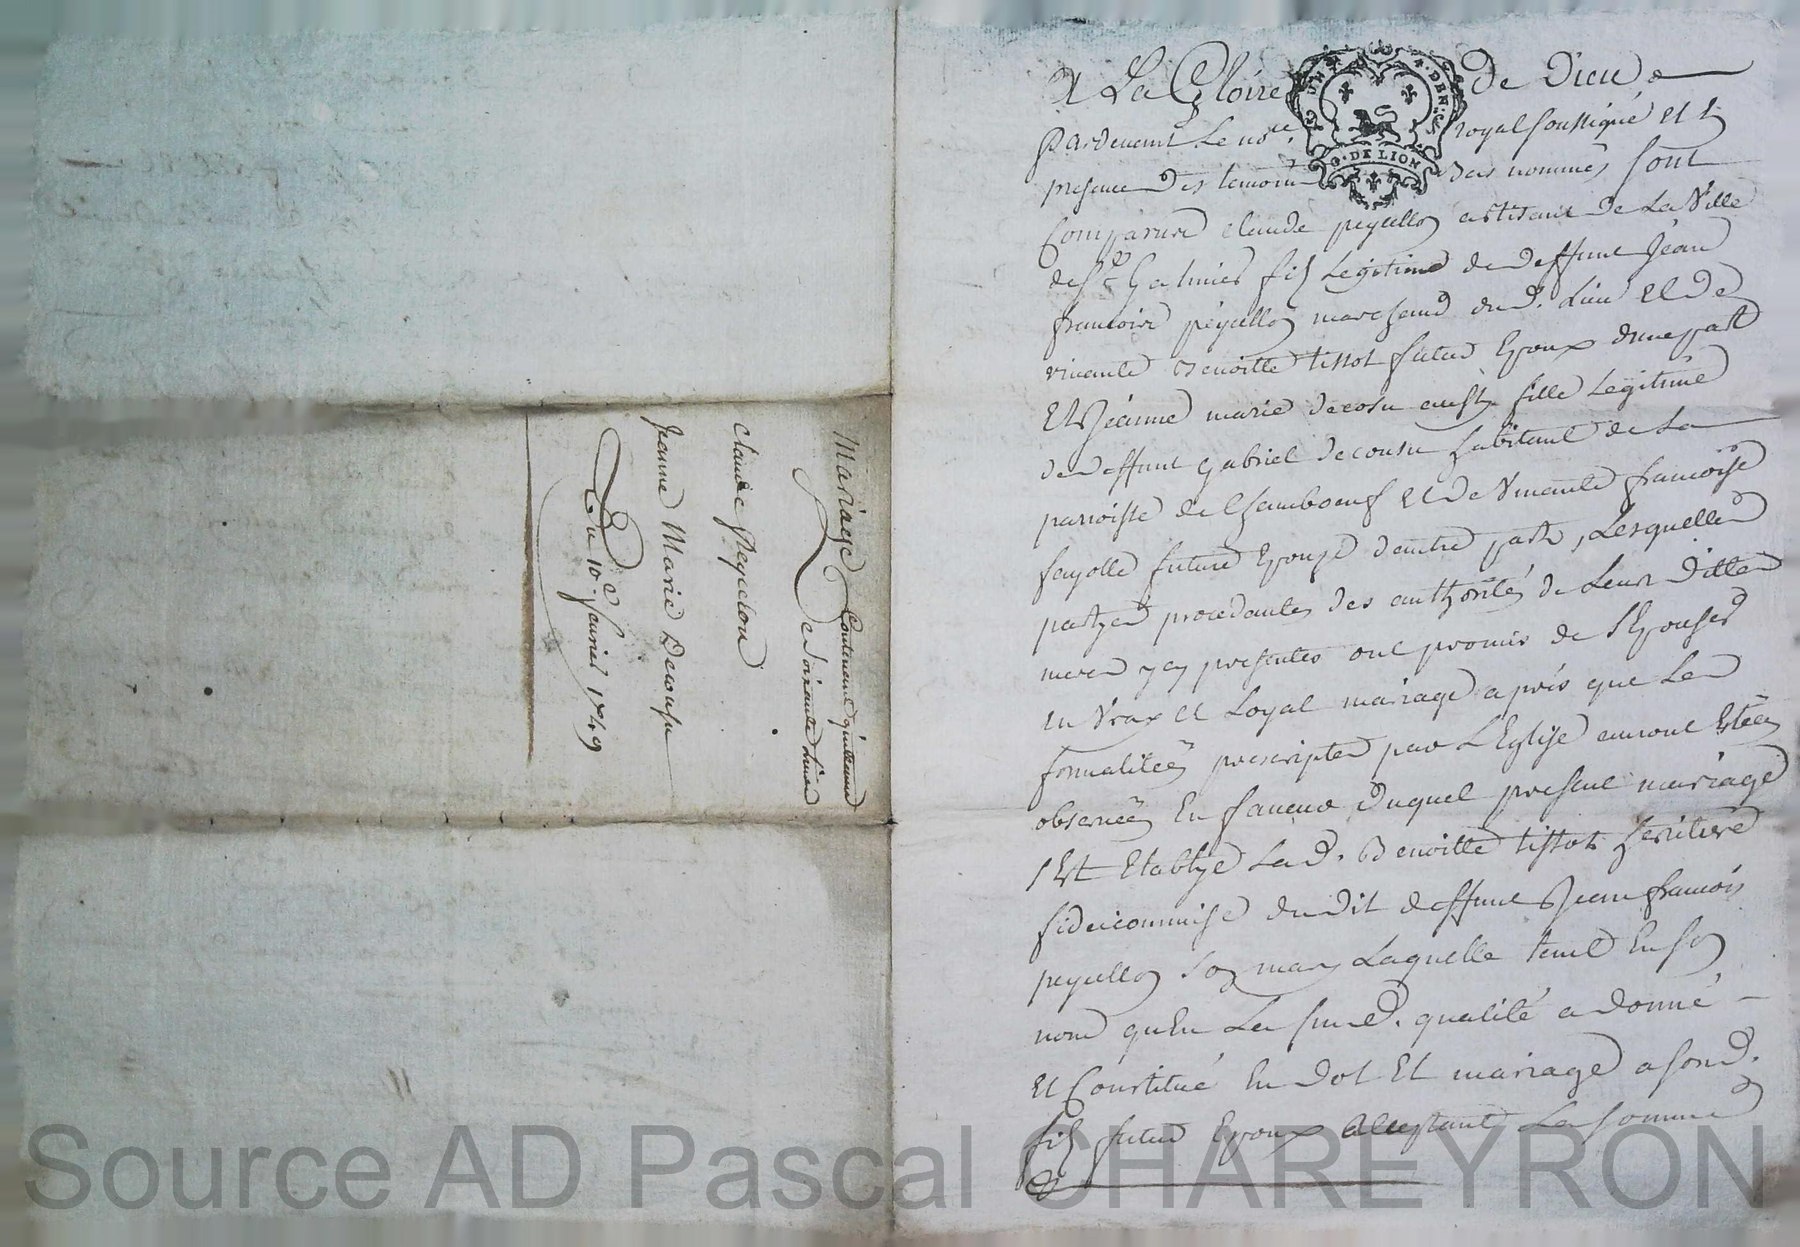 Mariage Contenant quittance
de soixante livres
Claude Peyellon
Jeanne Marie Decousu
Du 10e. feurier 1749
A La Gloire de Dieu
G. DE LION
pardeuant Le nore. royal soussigné et En
presence des temoins bas nommés sont
Comparus claude peyellon artisant de La Ville
de st Galmier fils Legitime de deffunt Jean
francois peyellon marchand dud. Lieu et de
viuante Benoitte tissot futur Epoux d'une part
Et Jeanne marie decousu aussy fille Legitime
de deffunt gabriel decousu habitant de La
parroisse de Chamboeuf et de Viuante francoise
fayolle future Epouse d'autre part, Lesquelles
partyes procedantes des authorités de Leurs dittes
meres icy presentes ont promis de s'Epouser
en Vray et Loyal mariage apprés que Les
formalitées prescriptes par L'Eglise auront Estées
obseruées En faueur duquel present mariage
s'est Etablye Lad. Benoitte tissot heritiere
fideicommise du dit deffunt Jean francois
peyellon son mary Laquelle tant En son
nom qu'En La susd. qualité a donné
et Constitué En dot Et mariage a sond.
fils futur Epoux Acceptant La somme
Source AD Pascal CHAREYRON